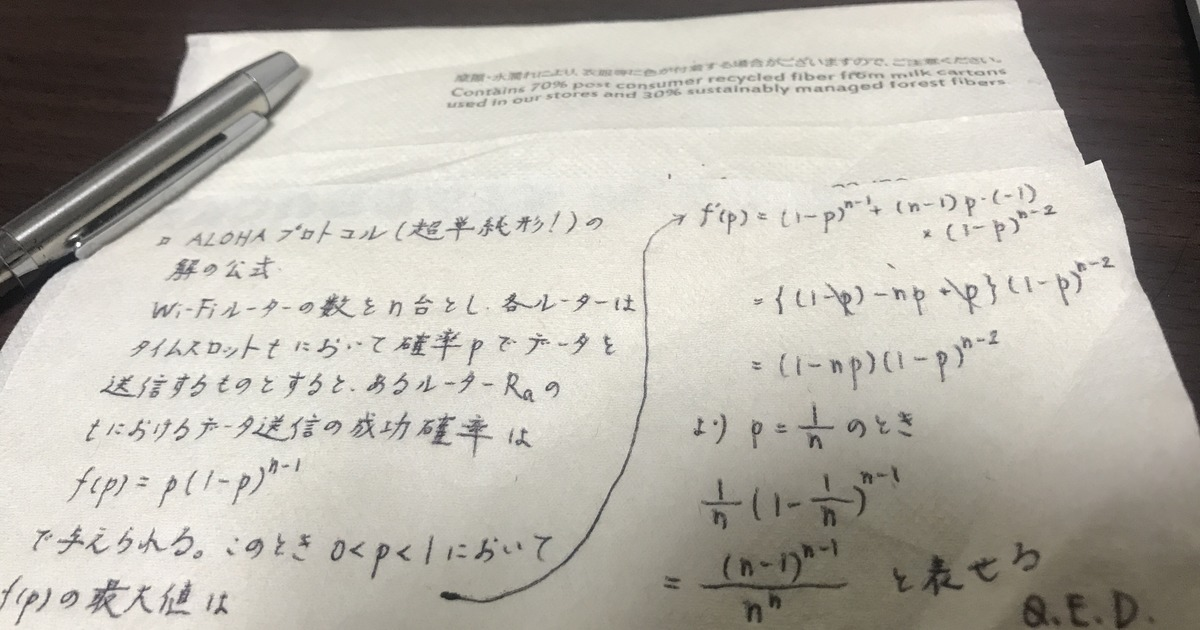 摩擦・水濡れにより、衣服等に色が付着する場合がございますので、ご注意ください。
Contains 70% post consumer recycled fiber from milk cartons
used in our stores and 30% sustainably managed forest fibers
□ ALOHAプロトコル(超単純形!)の
解の公式.
Wi-Fiルーターの数をn台とし、各ルーターは
タイムスロットtにおいて確率pでデータを
送信するものとすると、あるルーターRaの
tにおけるデータ送信の成功確率は
f(p) = p(1-p)^{n-1}
で与えられる。このとき 0<p<1において
f(p)の最大値は
f'(p) = (1-p)^{n-1} + (n-1)p・(-1)
× (1-p)^{n-2}
= {(1-p) -np +p}(1-p)^{n-2}
= (1-np)(1-p)^{n-2}
より p = 1/n のとき
1/n (1 - 1/n)^{n-1}
= (n-1)^{n-1} / n^n と表せる
Q.E.D.